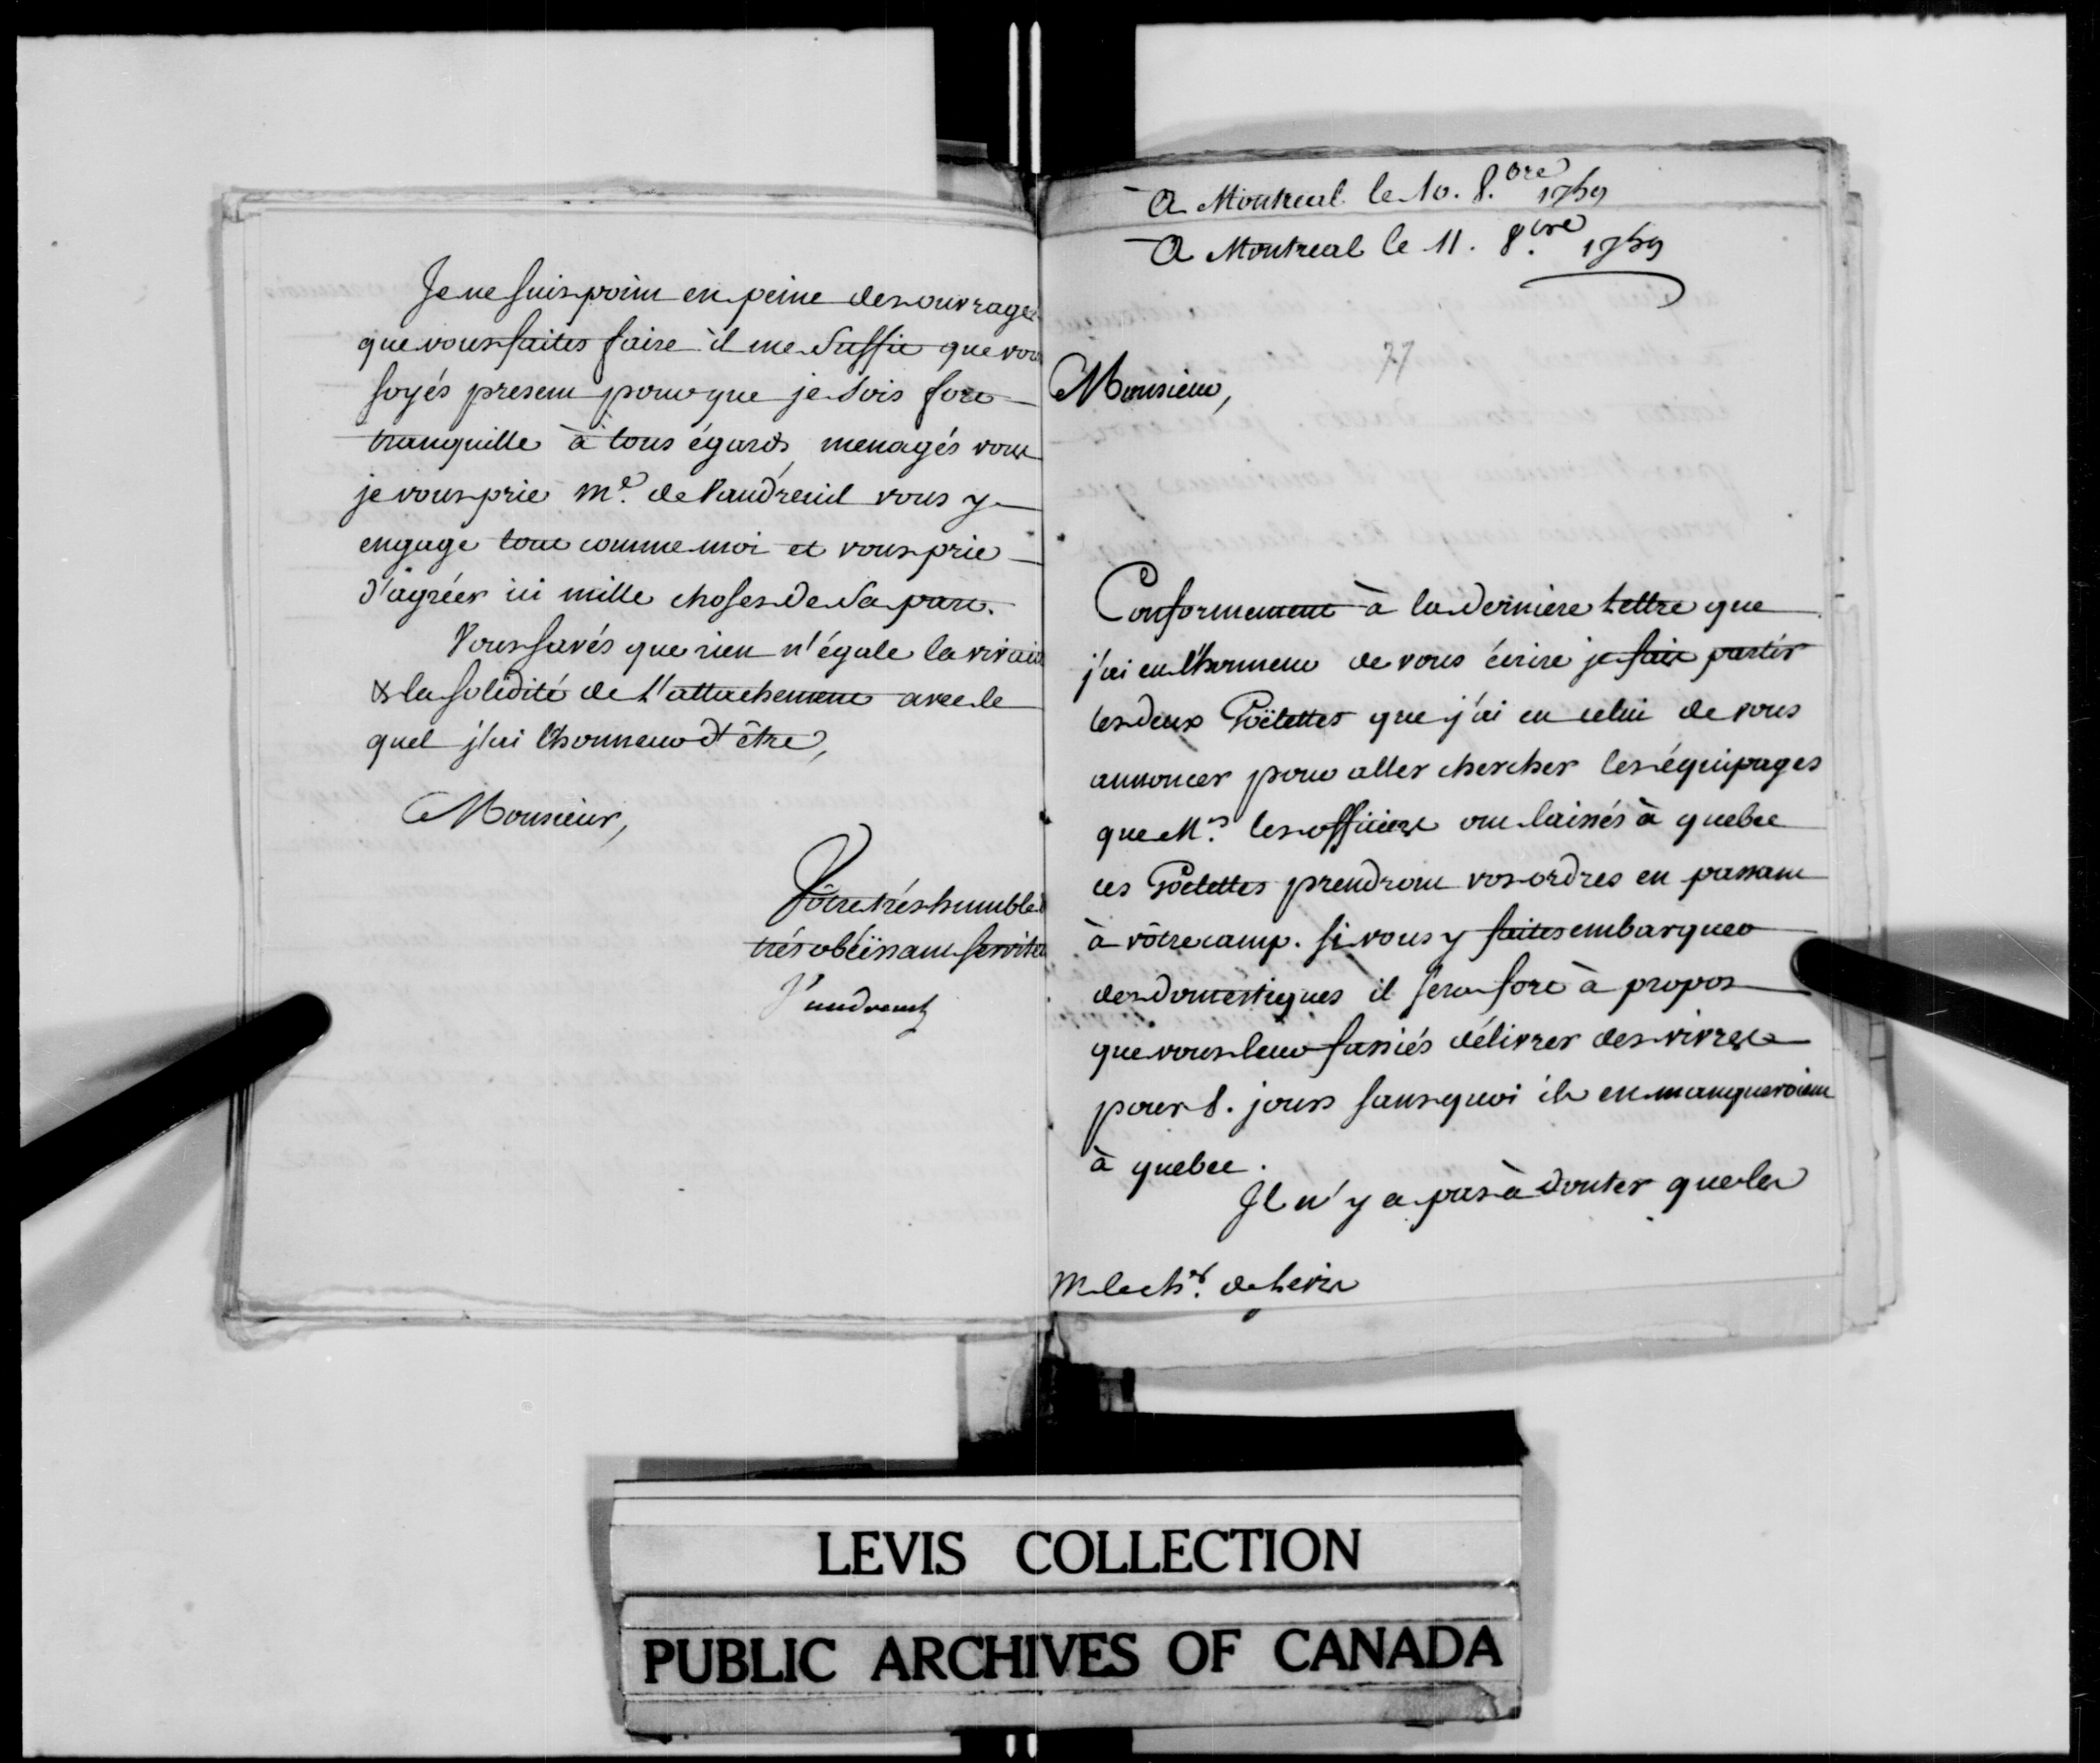 Je ne suis point en peine des ouvrages
que vous faites faire il me suffit que vous
soyés present pour que je sois fort
tranquille à tous égards, menagés vous
je vous prie Mᵉ. de Vaudreuil vous y
engage tout comme moi et vous prie
d'agréer ici mille choses de sa part.
Vous savés que rien n'égale la vivacité
& la solidité de l'attachement avec le
quel j'ai l'honneur d'être,
Monsieur,
Vôtre trés humble &
trés obéissant serviteur
Vaudreuil
A Montreal le 10. 8.bre 1759
A Montreal le 11. 8.bre 1759
77
Monsieur,
Conformement à la derniere lettre que
j'ai eu l'honneur de vous écrire je fais partir
les deux Goëlettes que j'ai eu celui de vous
annoncer pour aller chercher les équipages
que Mrs. les officiers ont laissés à quebec
ces Goelettes prendront vos ordres en passant
à vôtre camp. si vous y faites embarquer
des domestiques il sera fort à propos
que vous leur fassiés délivrer des vivres
pour 8. jours sans quoi ils en manqueroient
à quebec.
Il n'y a pas à douter que les
M. le chr. de Levis
LEVIS COLLECTION
PUBLIC ARCHIVES OF CANADA